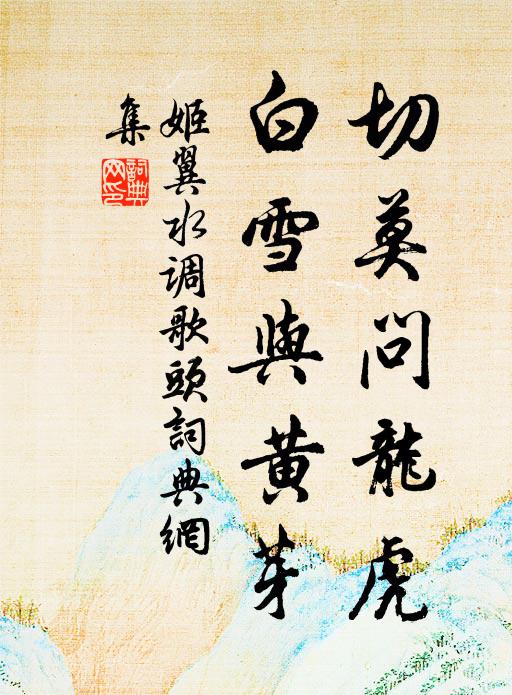 切莫问龍虎
白雪與黄芽
姬翼水调歌頭詞典網
集
詞典
网印